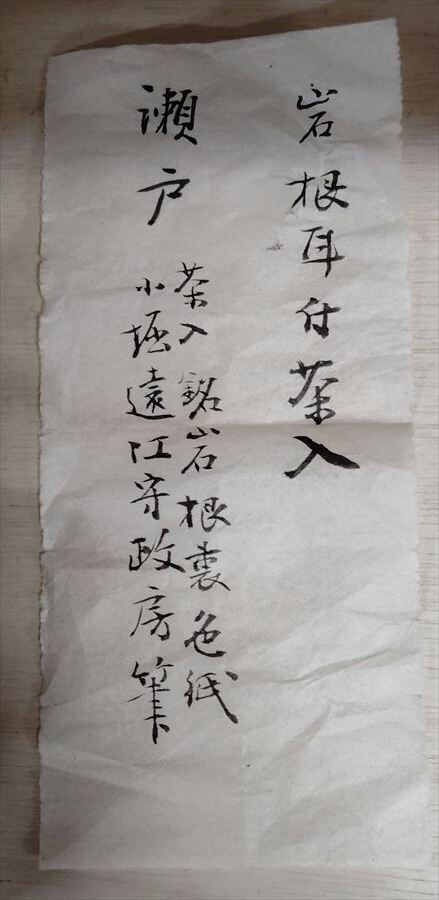 岩根耳付茶入
瀬戸
茶入銘岩根裏色紙
小堀遠江守政房筆